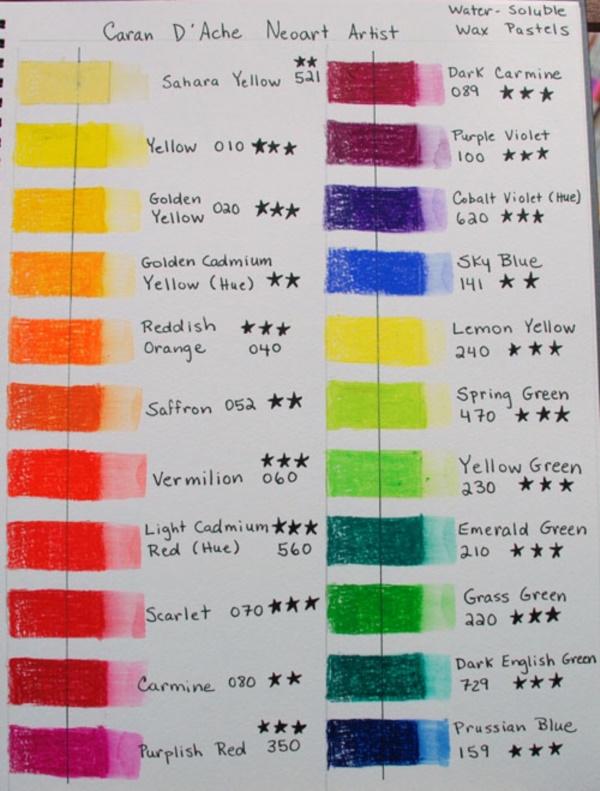 Caran D'Ache Neoart Artist
Water-Soluble
Wax Pastels
★★
Sahara Yellow 521
Yellow 010 ★★★
Golden
Yellow 020 ★★★
Golden Cadmium
Yellow (Hue) ★★
Reddish ★★★
Orange 040
Saffron 052 ★★
★★★
Vermilion 060
Light Cadmium ★★★
Red (Hue) 560
Scarlet 070 ★★★
Carmine 080 ★★
★★★
Purplish Red 350
Dark Carmine
089 ★★★
Purple Violet
100 ★★★
Cobalt Violet (Hue)
620 ★★★
Sky Blue
141 ★★
Lemon Yellow
240 ★★★
Spring Green
470 ★★★
Yellow Green
230 ★★★
Emerald Green
210 ★★★
Grass Green
220 ★★★
Dark English Green
729 ★★★
Prussian Blue
159 ★★★